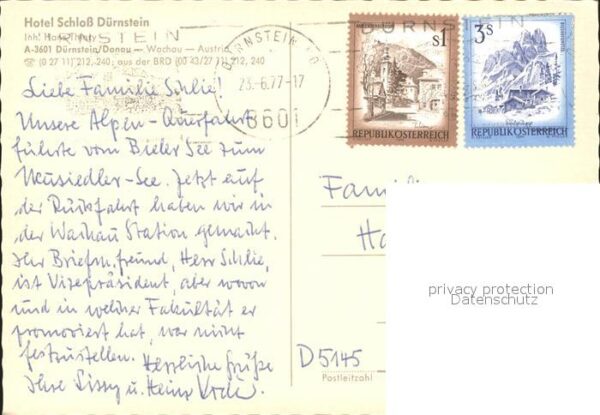 Hotel Schloß Dürnstein
Inh! Hans Thiery
A-3601 Dürnstein/Donau — Wachau — Austria
☎ (0 27 11) 212, 240, aus der BRD (00 43/27 11) 212, 240
DÜRNSTEIN
23.-6.77-17
3601
DÜRNSTEIN
S1
REPUBLIK ÖSTERREICH
3S
REPUBLIK ÖSTERREICH
Liebe Familie Schlie!
Unsere Alpen-Querfahrt
führte vom Bieler See zum
Neusiedler-See. Jetzt auf
der Rückfahrt haben wir in
der Wachau Station gemacht.
Ihr Briefm.freund, Herr Schlie,
ist Vizepräsident, aber wovon
und in welcher Fakultät er
promoviert hat, war nicht
festzustellen. Herzliche Grüße
Ihre Sissy u. Heinz
Famil
Ha
D5145
Postleitzahl
privacy protection
Datenschutz